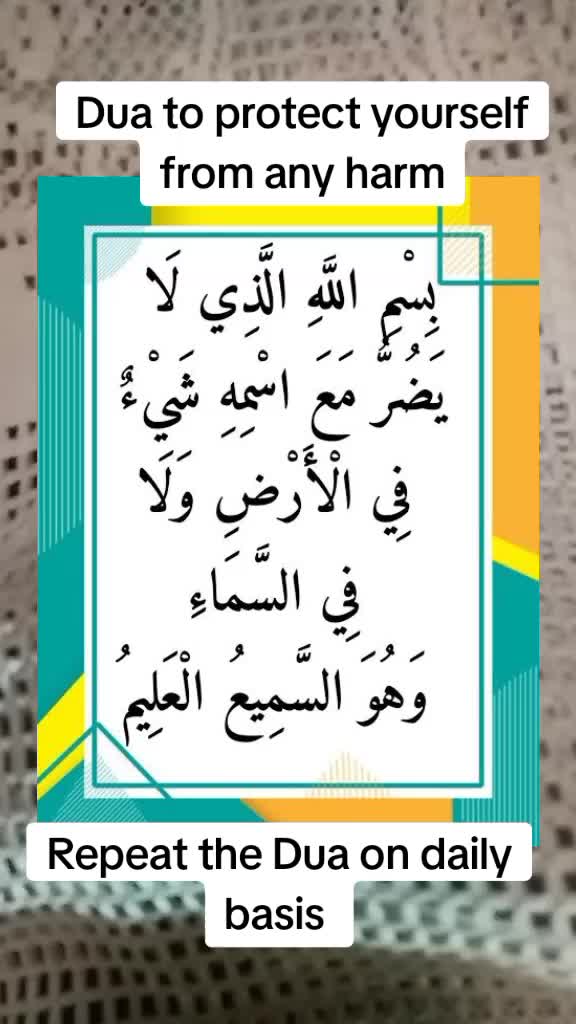 Dua to protect yourself
from any harm
بِسْمِ اللَّهِ الَّذِي لَا
يَضُرُّ مَعَ اسْمِهِ شَيْءٌ
فِي الْأَرْضِ وَلَا
فِي السَّمَاءِ
وَهُوَ السَّمِيعُ الْعَلِيمُ
Repeat the Dua on daily
basis